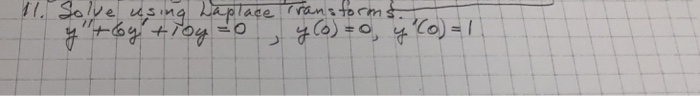 11. Solve using Laplace Transforms.
y" + 6y' + 10y = 0 , y(0) = 0, y'(0) = 1